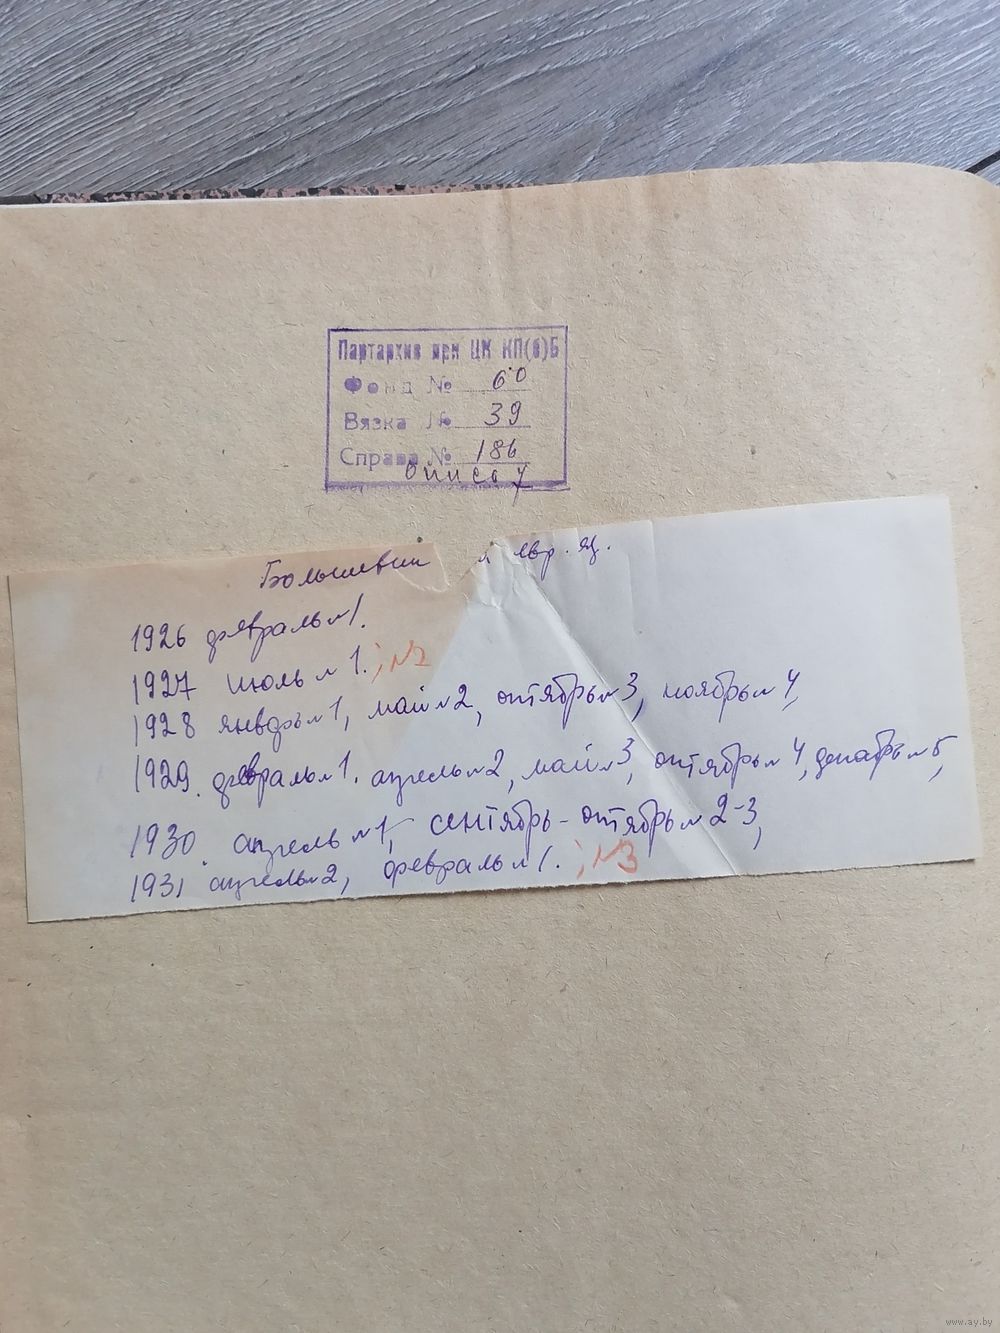 Партархив при ЦК КП(б)Б
Фонд № 60
Вязка № 39
Справа № 186
описа 7
Большевик на евр. яз.
1926 февраль №1.
1927 июль №1.; №2
1928 январь №1, май №2, октябрь №3, ноябрь №4,
1929. февраль №1. апрель №2, май №3, октябрь №4, декабрь №5,
1930. апрель №1, сентябрь-октябрь №2-3,
1931 апрель №2, февраль №1.; №3
www.ay.by